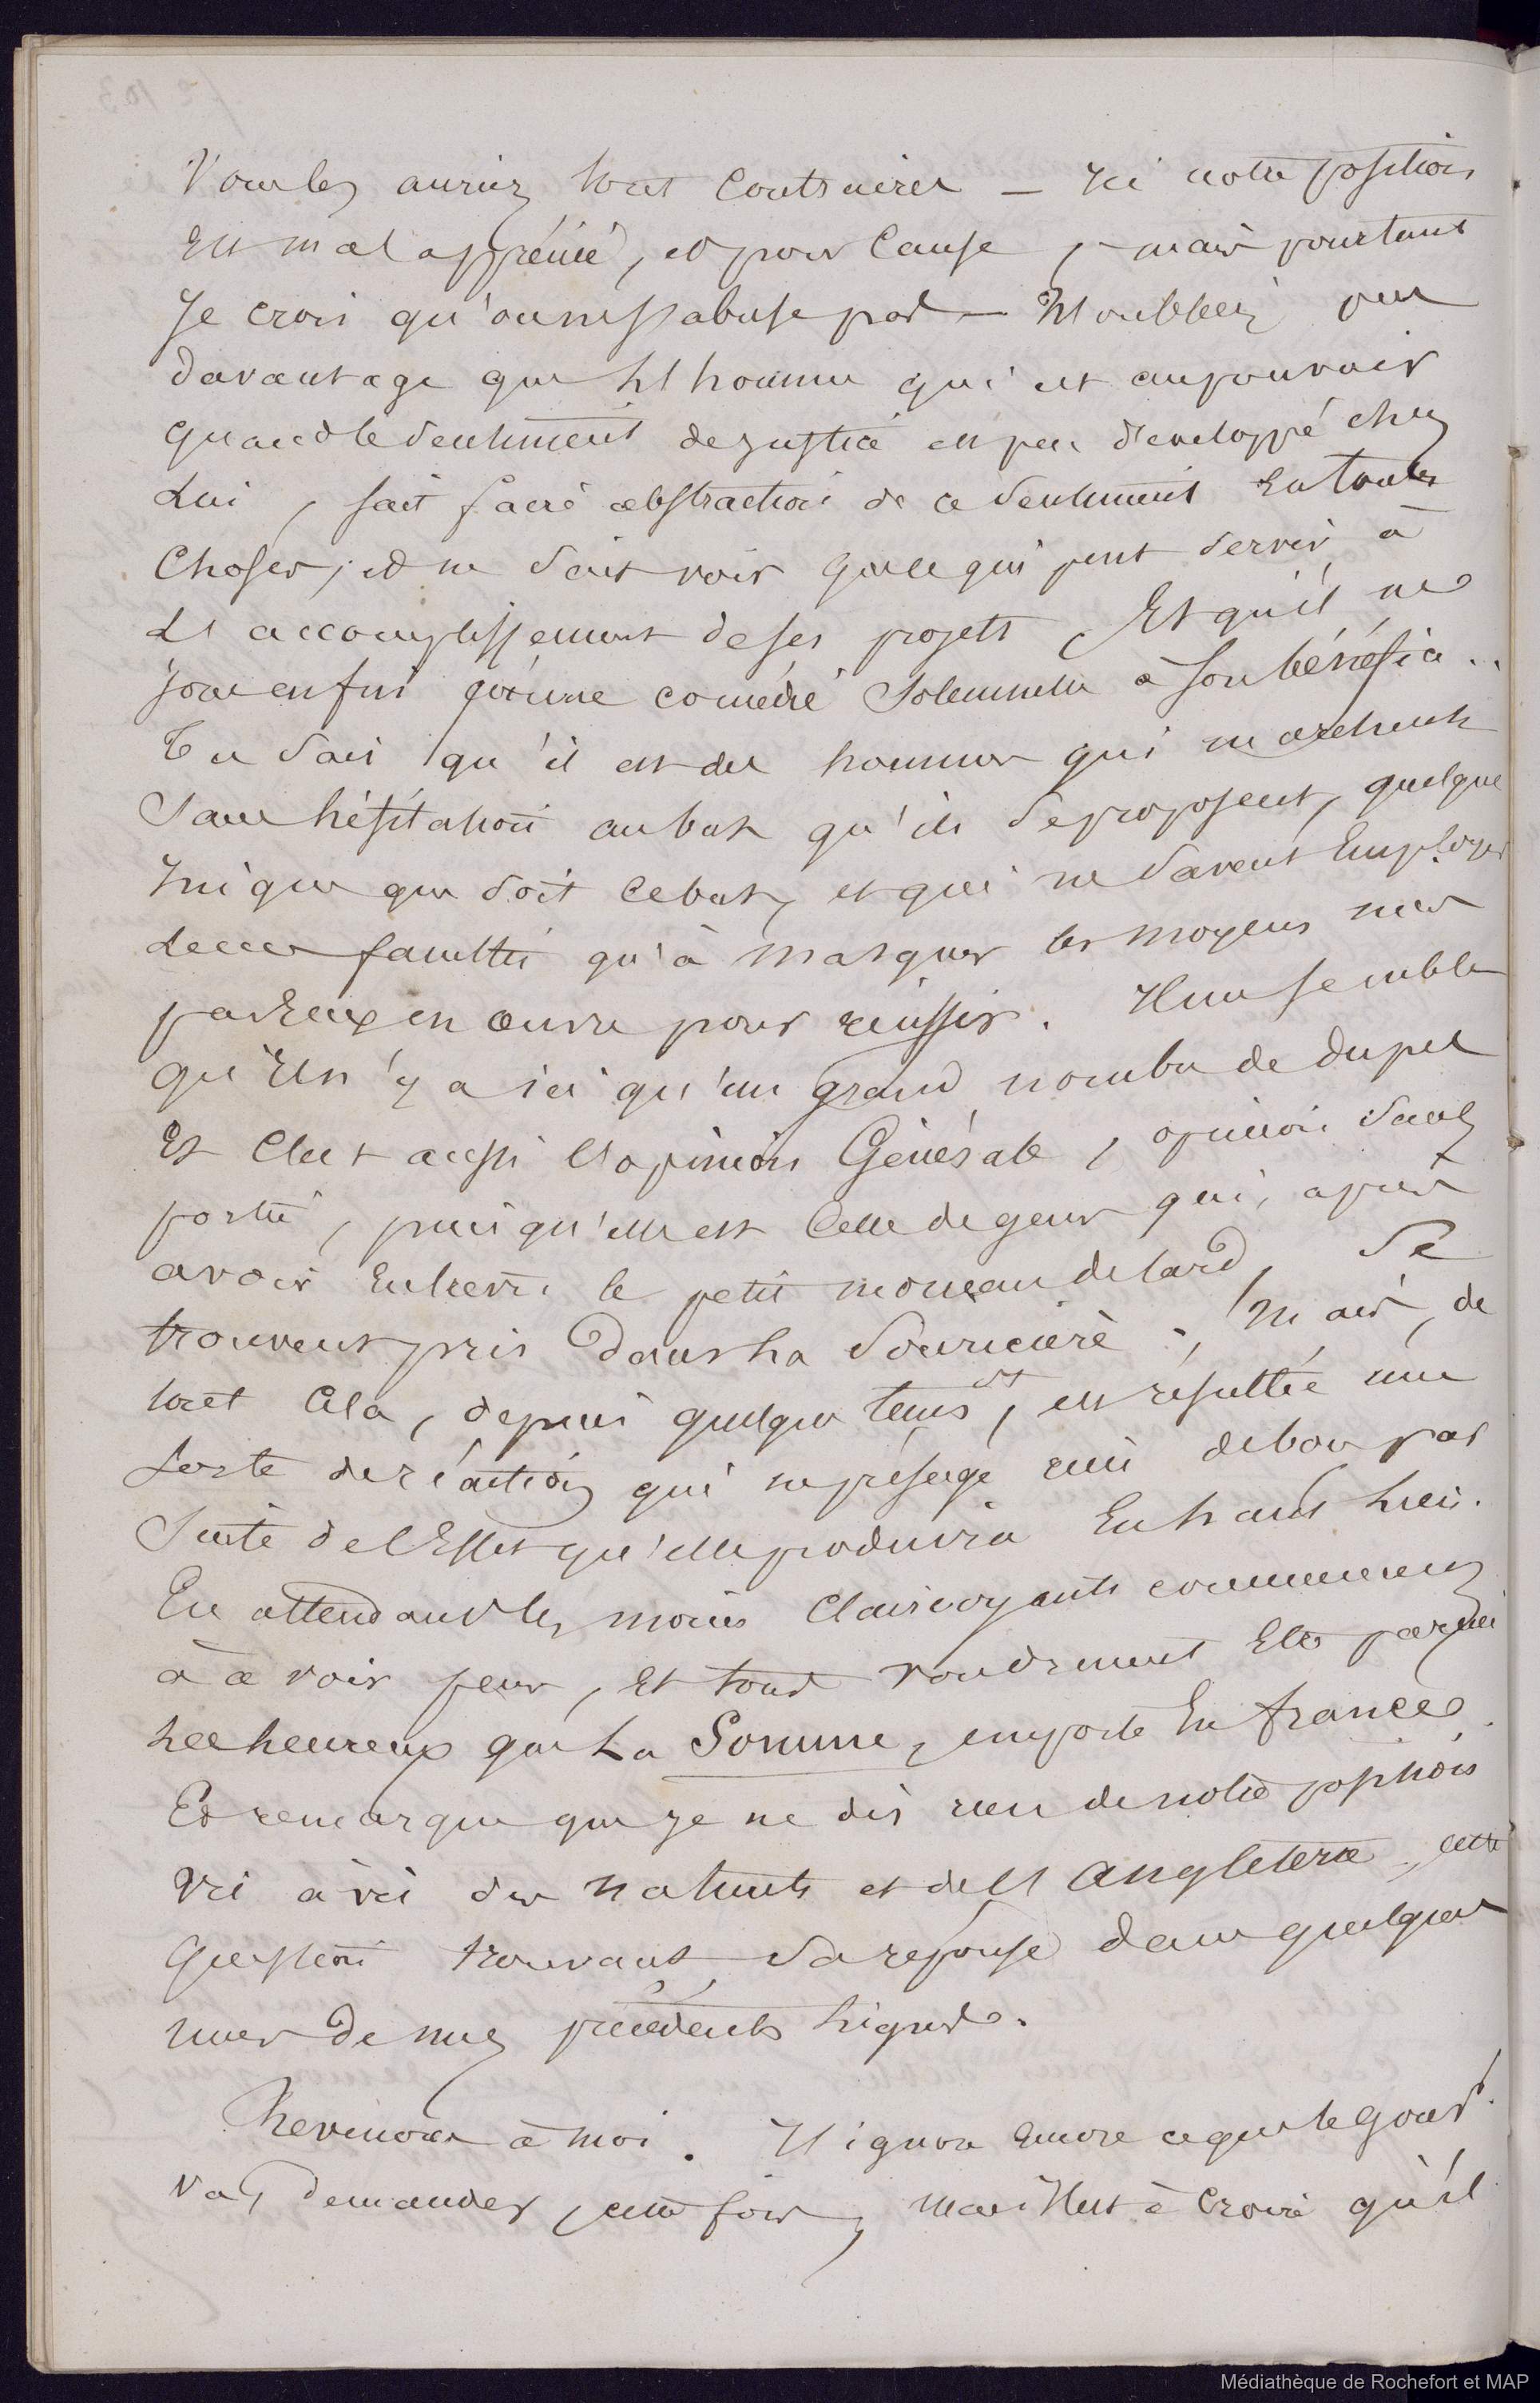 Vous les auriez tout contraires — Ici notre position
Est mal appréciée, et pour cause, mais pourtant
Je crois qu'on ne s'abuse pas — N'oubliez pas
davantage que l'homme qui est au pouvoir
quand le sentiment de justice est peu développé chez
Lui, fait faire abstraction de ce sentiment En toutes
Choses; et ne sait voir que ce qui peut servir à
L'accomplissement de ses projets, Et qu'il ne
joue enfin qu'une comédie Solemnelle à son bénéfice...
Tu sais qu'il est des hommes qui marchent
Sans hésitation au but qu'ils se proposent, quelque
Inique que soit ce but, et qui ne savent Employer
leurs facultés qu'à masquer les moyens mis
par Eux en œuvre pour réussir. Il me semble
qu'Il n'y a ici qu'un grand nombre de dupes
Et C'est aussi l'opinion Générale, opinion sans
portée, puisqu'elle est Celle de gens qui, après
avoir Entrevu le petit morceau de lard, Se
trouvent pris Dans La Souricière; Mais, de
tout Cela, depuis quelque tems, est résultée une
Sorte de réaction qui ne présage rien de bon par
Suite de l'Effet qu'elle produira En haut lieu.
En attendant les moins Clairvoyants commencent
à avoir peur, Et tous voudraient Etre parmi
les heureux que La Somme, emporte En france.
Et remarque que je ne dis rien de notre position
vis à vis des naturels et de l'Angleterre, cette
Question trouvant Sa réponse dans quelques
unes De mes précédentes lignes.
Revenons à moi. J'ignore Encore ce que le Gouv.t
va, demander, cette fois, mais Il est à Croire qu'il
Médiathèque de Rochefort et MAP